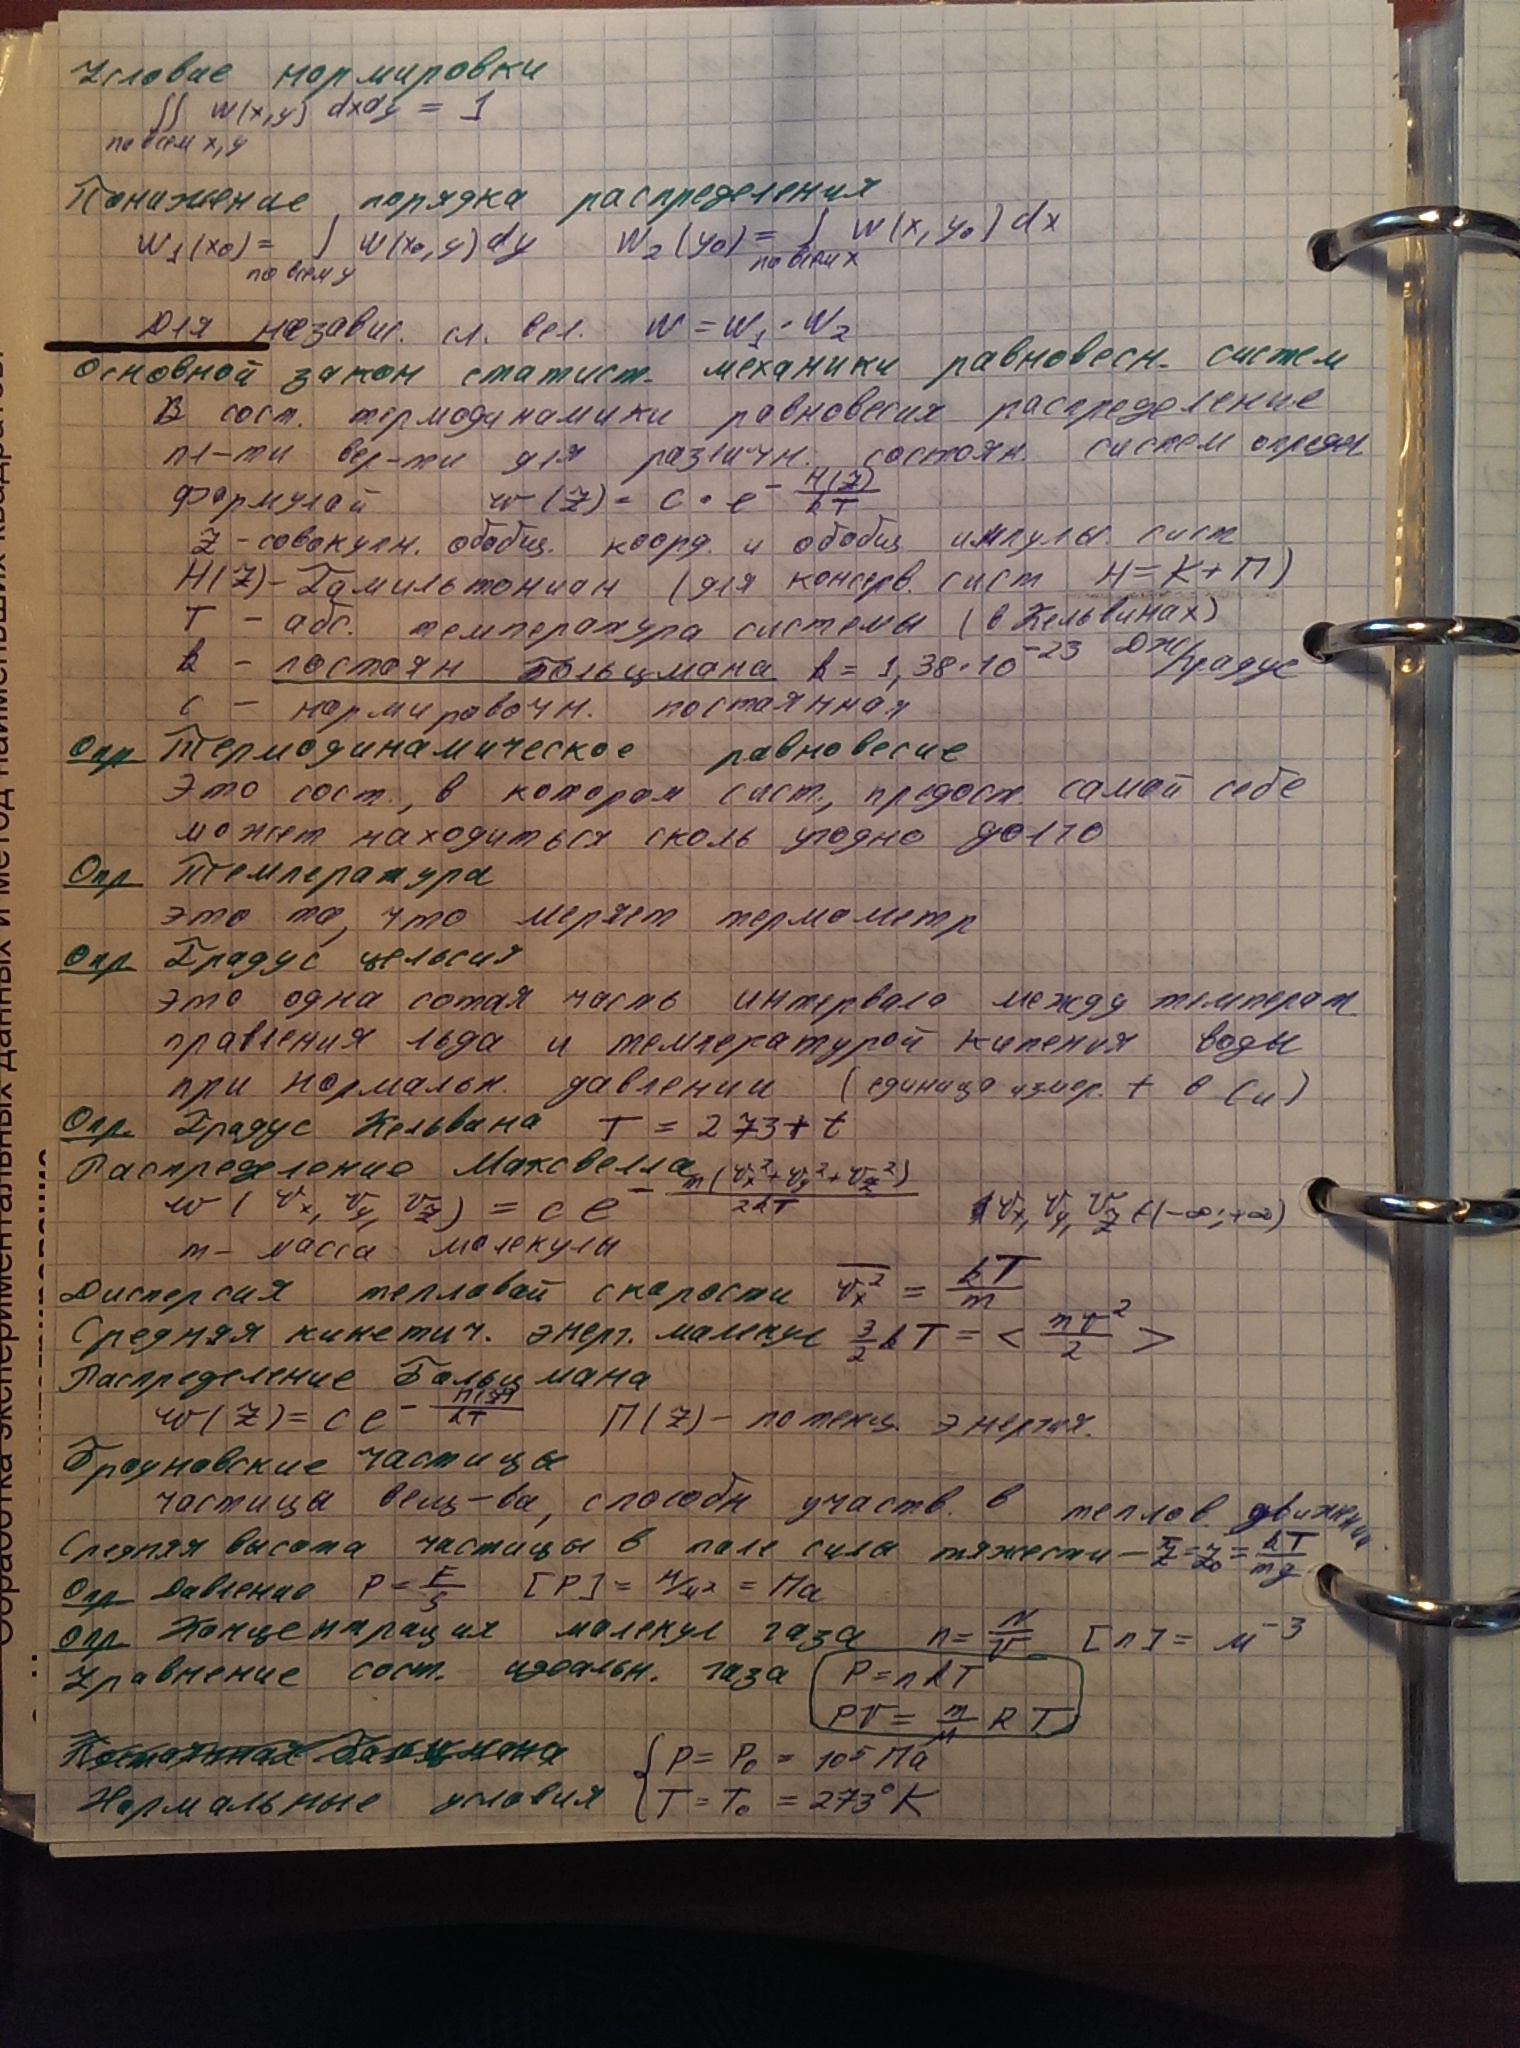 Условие нормировки
∬ w(x,y) dxdy = 1
по всем x,y
Понижение порядка распределения
w₁(x₀) = ∫ w(x₀,y)dy W₂(y₀) = ∫ w(x,y₀)dx
по всем y по всем x
Для независ. сл. вел. W = W₁·W₂
Основной закон статист. механики равновесн. систем
В сост. термодинамики равновесия распределение
пл-ти вер-ти для различн. состоян. систем опреде
формулой w(Z) = c·e^(-H(Z)/kT)
Z - совокупн. обобщ. коорд. и обобщ импульс. сист
H(Z) - Гамильтониан (для консерв. сист H=K+П)
T - абс. температура системы (в Кельвинах)
k - постоян Больцмана k = 1,38·10⁻²³ Дж/градус
c - нормировочн. постоянная
Опр Термодинамическое равновесие
Это сост., в котором сист., предост. самой себе
может находиться сколь угодно долго
Опр Температура
это то, что меряет термометр
Опр Градус цельсия
это одна сотая часть интервала между температ
правления льда и температурой кипения воды
при нормальн. давлении (единица измер. t в Си)
Опр. Градус Кельвина T = 273 + t
Распределение Максвелла
w(v_x, v_y, v_z) = c e^(-m(v_x²+v_y²+v_z²)/2kT) v_x, v_y, v_z ∈(-∞;+∞)
m - масса молекулы
Дисперсия тепловой скорости v̅_x² = kT/m
Средняя кинетич. энерг. молекул 3/2 kT = < mv²/2 >
Распределение Больцмана
w(Z) = c e^(-П(Z)/kT) П(Z) - потенц. энергия.
Броуновские частицы
частицы вещ-ва, способн участв. в теплов. движении
Средняя высота частицы в поле силы тяжести - z̅ = z₀ = kT/mg
Опр Давление P = F/S [P] = Н/м² = Па
Опр Концентрация молекул газа n = N/V [n] = м⁻³
Уравнение сост. идеальн. газа P = nkT
PV = m/μ RT
Постоянная Больцмана { P = P₀ = 10⁵ Па
Нормальные условия T = T₀ = 273°K